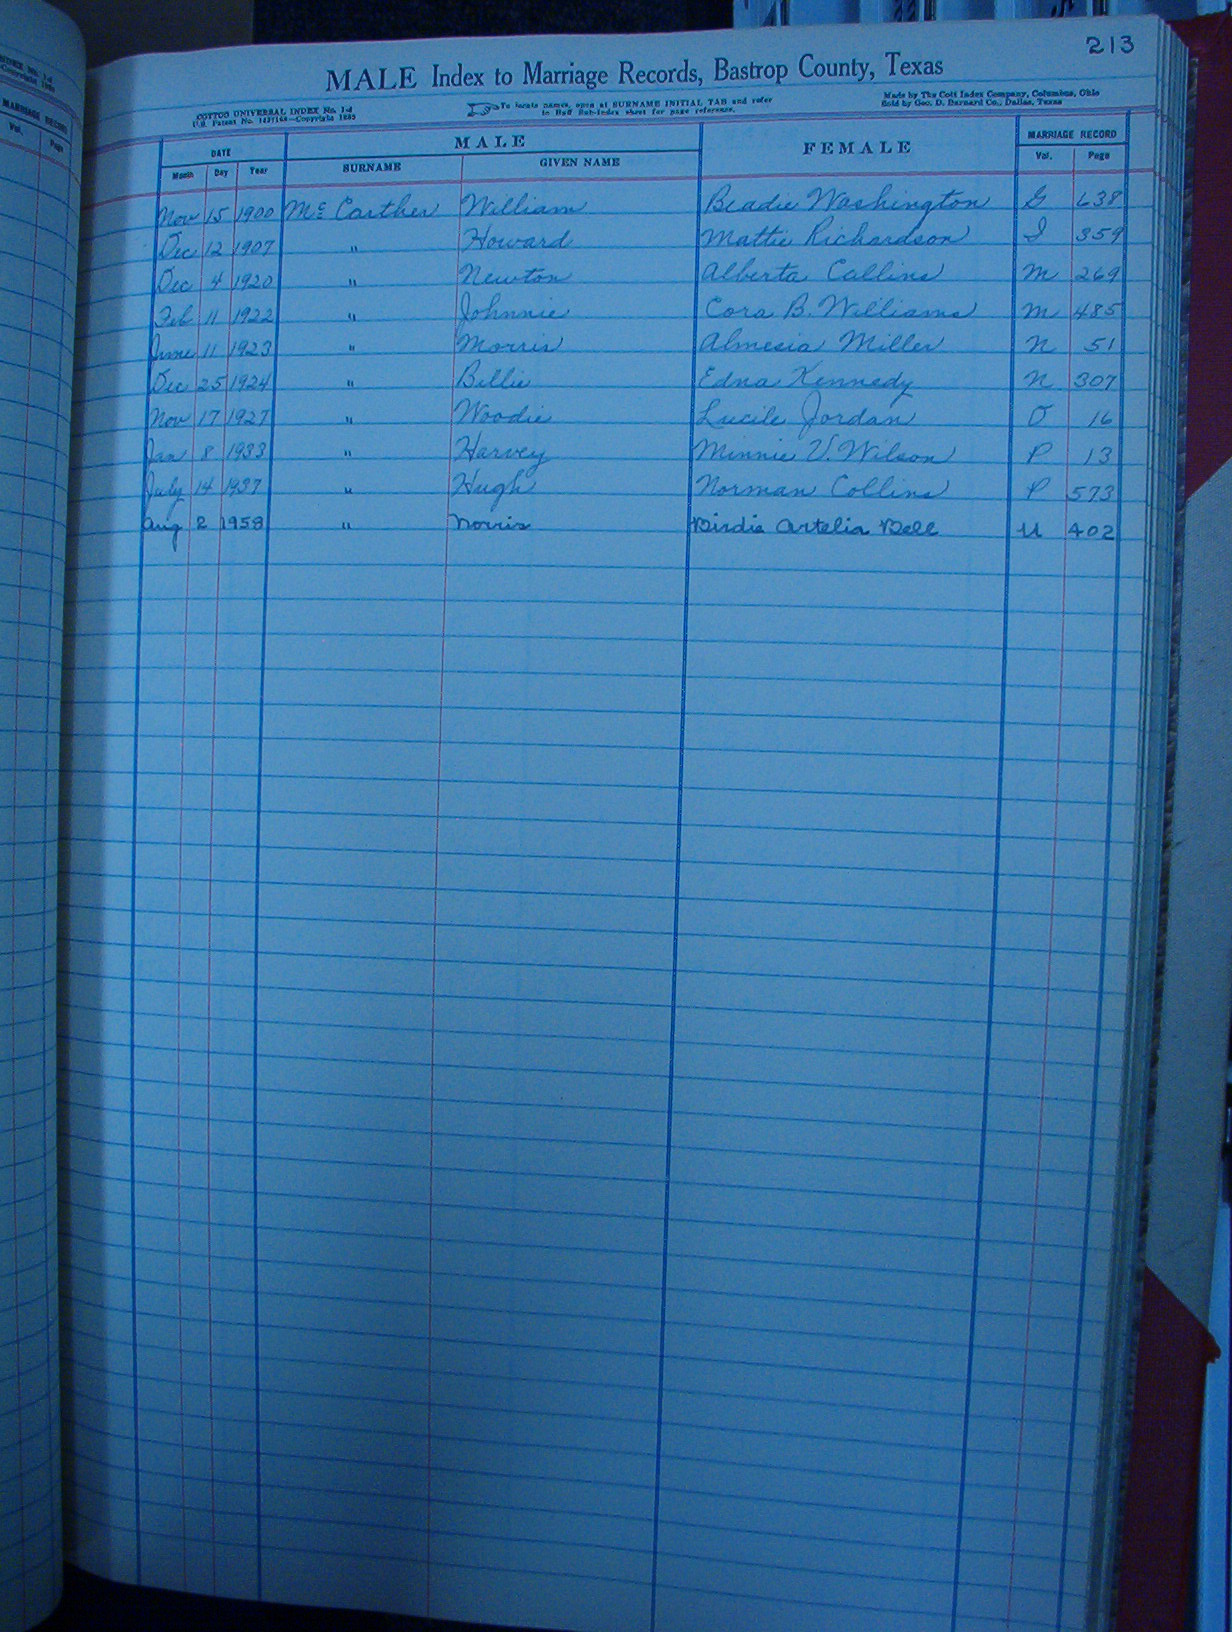 213
MALE Index to Marriage Records, Bastrop County, Texas
COTTOS UNIVERSAL INDEX No. 1-d
To locate names, open at SURNAME INITIAL TAB and refer
to Buff Sub-Index sheet for page reference.
Made by The Cott Index Company, Columbus, Ohio
Sold by Geo. D. Barnard Co., Dallas, Texas
DATE MALE FEMALE MARRIAGE RECORD
Month Day Year SURNAME GIVEN NAME Vol. Page
Nov 15 1900 Mc Carther William Beadie Washington G 638
Dec 12 1907 " Howard Mattie Richardson I 359
Dec 4 1920 " Newton Alberta Collins M 269
Feb 11 1922 " Johnnie Cora B. Williams M 485
June 11 1923 " Morris Almesia Miller N 51
Dec 25 1924 " Billie Edna Kennedy N 307
Nov 17 1927 " Woodie Lucile Jordan O 16
Jan 8 1933 " Harvey Minnie V. Wilson P 13
July 14 1937 " Hugh Norman Collins P 573
Aug 2 1958 " Norris Birdie Artelia Bell U 402
MARRIAGE RECORD
Vol. Page